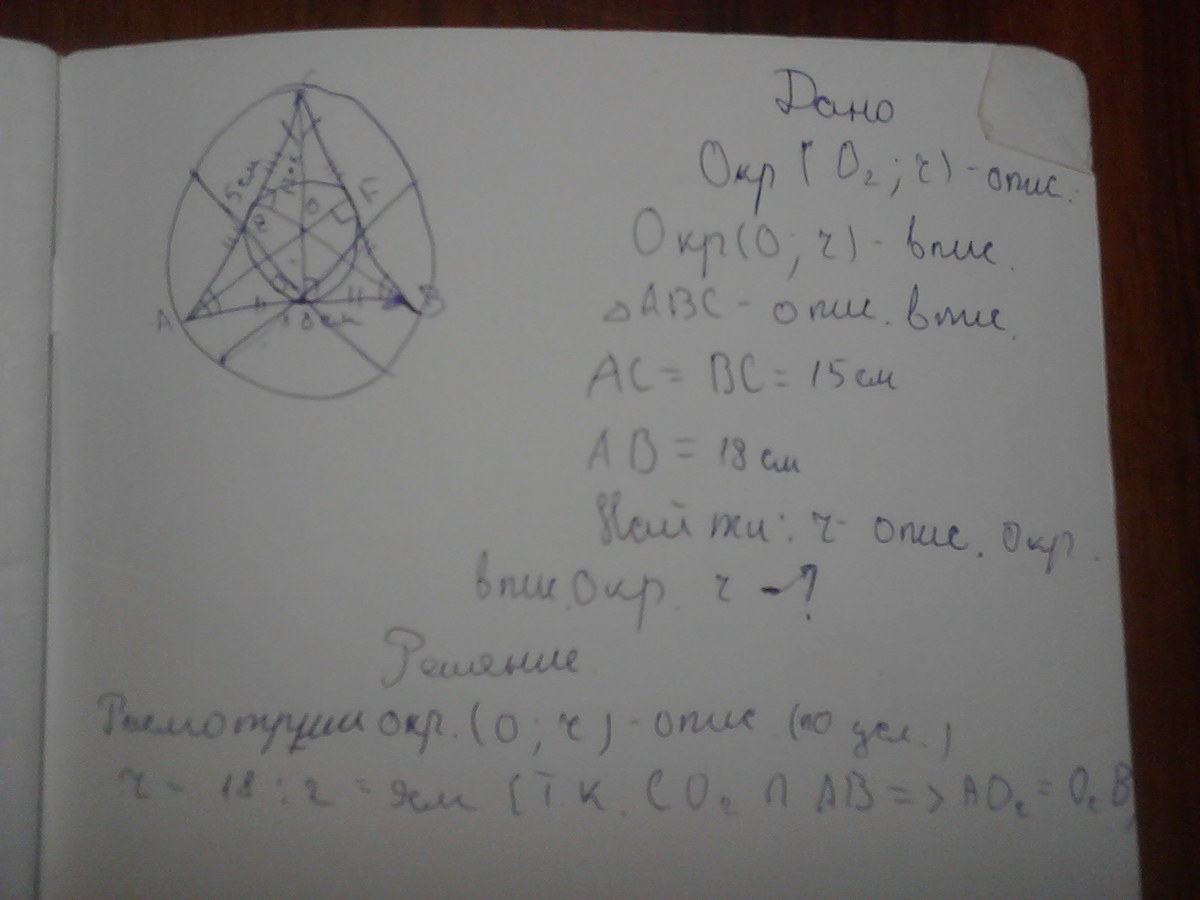 C
5см
O
E
A
B
18см
Дано
Окр (O₂; r) - опис.
Окр(O; r) - впис.
△ABC - опис. впис.
AC = BC = 15см
AB = 18см
Найти: r опис. окр.
впис. Окр. r - ?
Решение
Расмотрим окр. (O; r) - опис (по усл.)
r = 18 : 2 = 9см (т.к. CO₂ ∩ AB => AO₂ = O₂B)